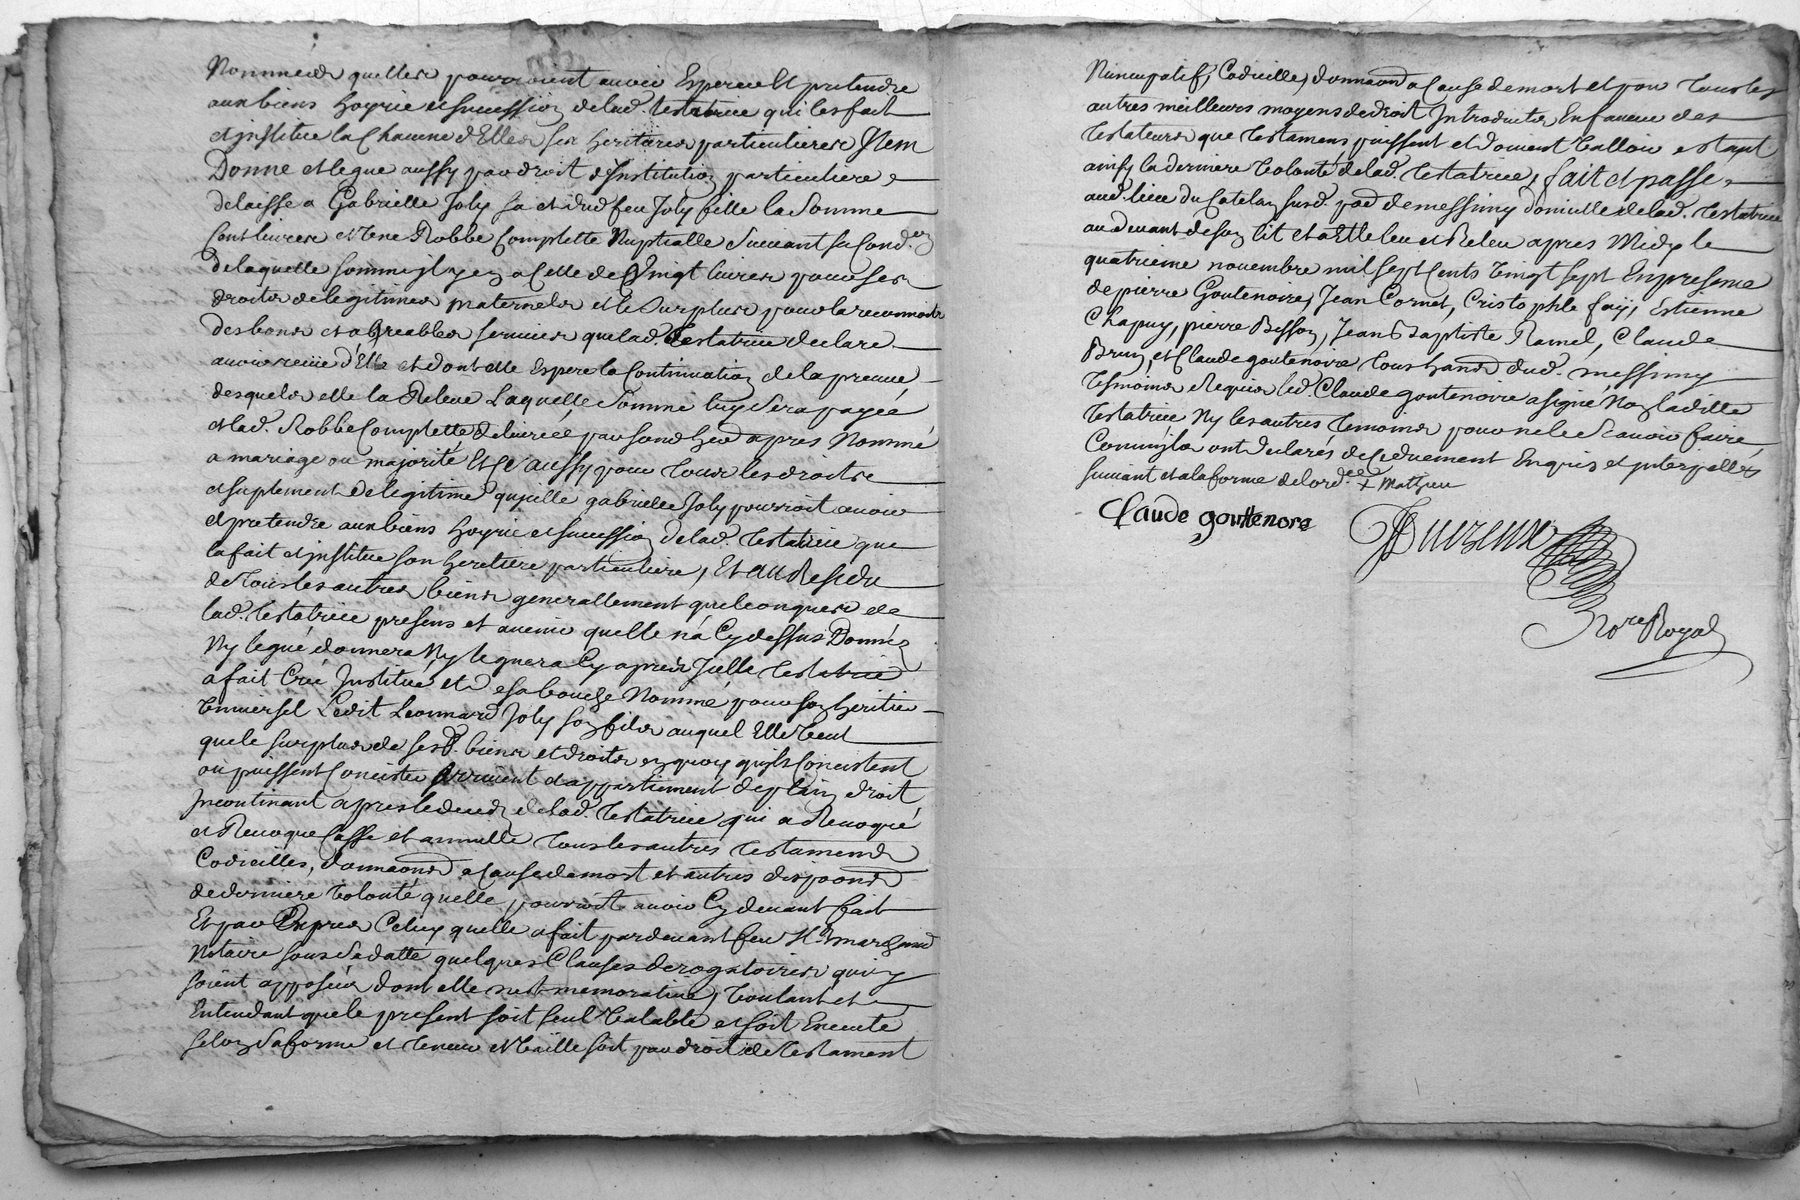 Nommées quelles pourroient avoir Esperer Et pretendre
aux biens hoyrie et succession de lad. testatrice qui les fait
et institue la Chacune d'Elles ses heritieres particulieres Item
Donne et legue aussy par droit d'Institution particuliere
delaisse a Gabrielle Joly sa et dud feu Joly fille la Somme
Cent livres et Une Robbe Complette Nuptialle Suivant sa Cond.on
de laquelle somme il y en a Celle de Vingt livres pour ses
droits de legitimes maternels et le Surplus pour la reconnoitre
des bons et agreables services que lad. testatrice declare
avoir reçue d'Elle et dont elle Espere la Continuation de la preuve
desquels elle la Releve Laquelle Somme luy Sera payée
et lad. Robbe Complette delivrée par son hed apres Nommé
a mariage ou majorité Et Ce aussy pour tous les droits
et suplement de legitime qu'icelle gabrielle Joly pourroit avoir
et pretendre aux biens hoyrie et succession de lad. testatrice que
la fait et institue son heretiere particuliere, Et au Residu
de tous les autres biens generallement quelconques de
lad. testatrice presens et avenir quelle n'a Cy dessus Donnés
Ny legué donnera Ny leguera Cy apres Icelle testatrice
a fait Créé Institué et de sa bouche Nommé pour son heritier
Universel Ledit Leonnard Joly son fils auquel Elle Veut
que le surplus de sesd. biens et droits en quoy qu'ils Concistent
ou puissent Concister arrivent et appartienent de plain droit
Incontinant apres le deces de lad. testatrice qui a Revoqué
et Revoque Casse et annulle tous les autres testamens
Codicilles, donnaons a Cause de mort et autres dispoons
de derniere Volonté quelle pourroit avoir Cy devant fait
Et par Expres Celuy quelle a fait pardevant feu Me marchand
Notaire sous sa datte quelques Clauses derogatoires qui y
soient apposées dont elle n'est memorative, Voulant et
Entendant que le present soit seul Valable et soit Executé
selon Sa forme et teneur et Vaille soit par droit de testament
Nuncupatif, Codicille, donnaon a Cause de mort et par tous les
autres meilleurs moyens de droit Introduits En faveur des
testateurs que testamens puissent et doivent Valloir estant
ainsy la derniere Volonté de lad. testatrice, fait et passe
aud. lieu du Catelan susd. pad de messimy domicille de lad. testatrice
au devant de son lit et a Elle leu et Releu apres Midy le
quatrieme novembre mil sept Cents Vingt sept En presence
de pierre Goutenoire, Jean Cornet, Cristophle fay, Estienne
Chapuy, pierre Besson, Jean Baptiste Ramel, Claude
Brun, et Claude goutenoire tous hands dud. messimy
tesmoins Requis led. Claude goutenoire a signé Non laditte
testatrice Ny les autres temoins pour ne le Scavoir faire
Comm'ils ont declarés de ce duement Enquis et interpellés
suivant et a la forme de lord.ce + Mathieu
Claude gouttenore
Duvzeux
No.re Royal